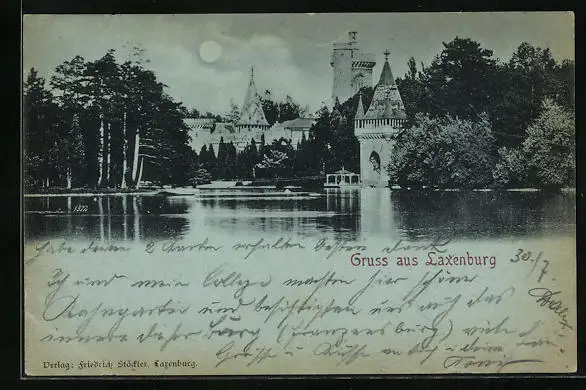 1372
habe deine 2 Karten erhalten besten dank
Gruss aus Laxenburg
30./7.
Ich und mein College machten hier schöne
Kahnpartie und besichtigten uns auch das
innere dieser Burg (Franzensburg) viele
Grüsse u. Küsse an dich u. deine
Verlag: Friedrich Stöckler, Laxenburg.